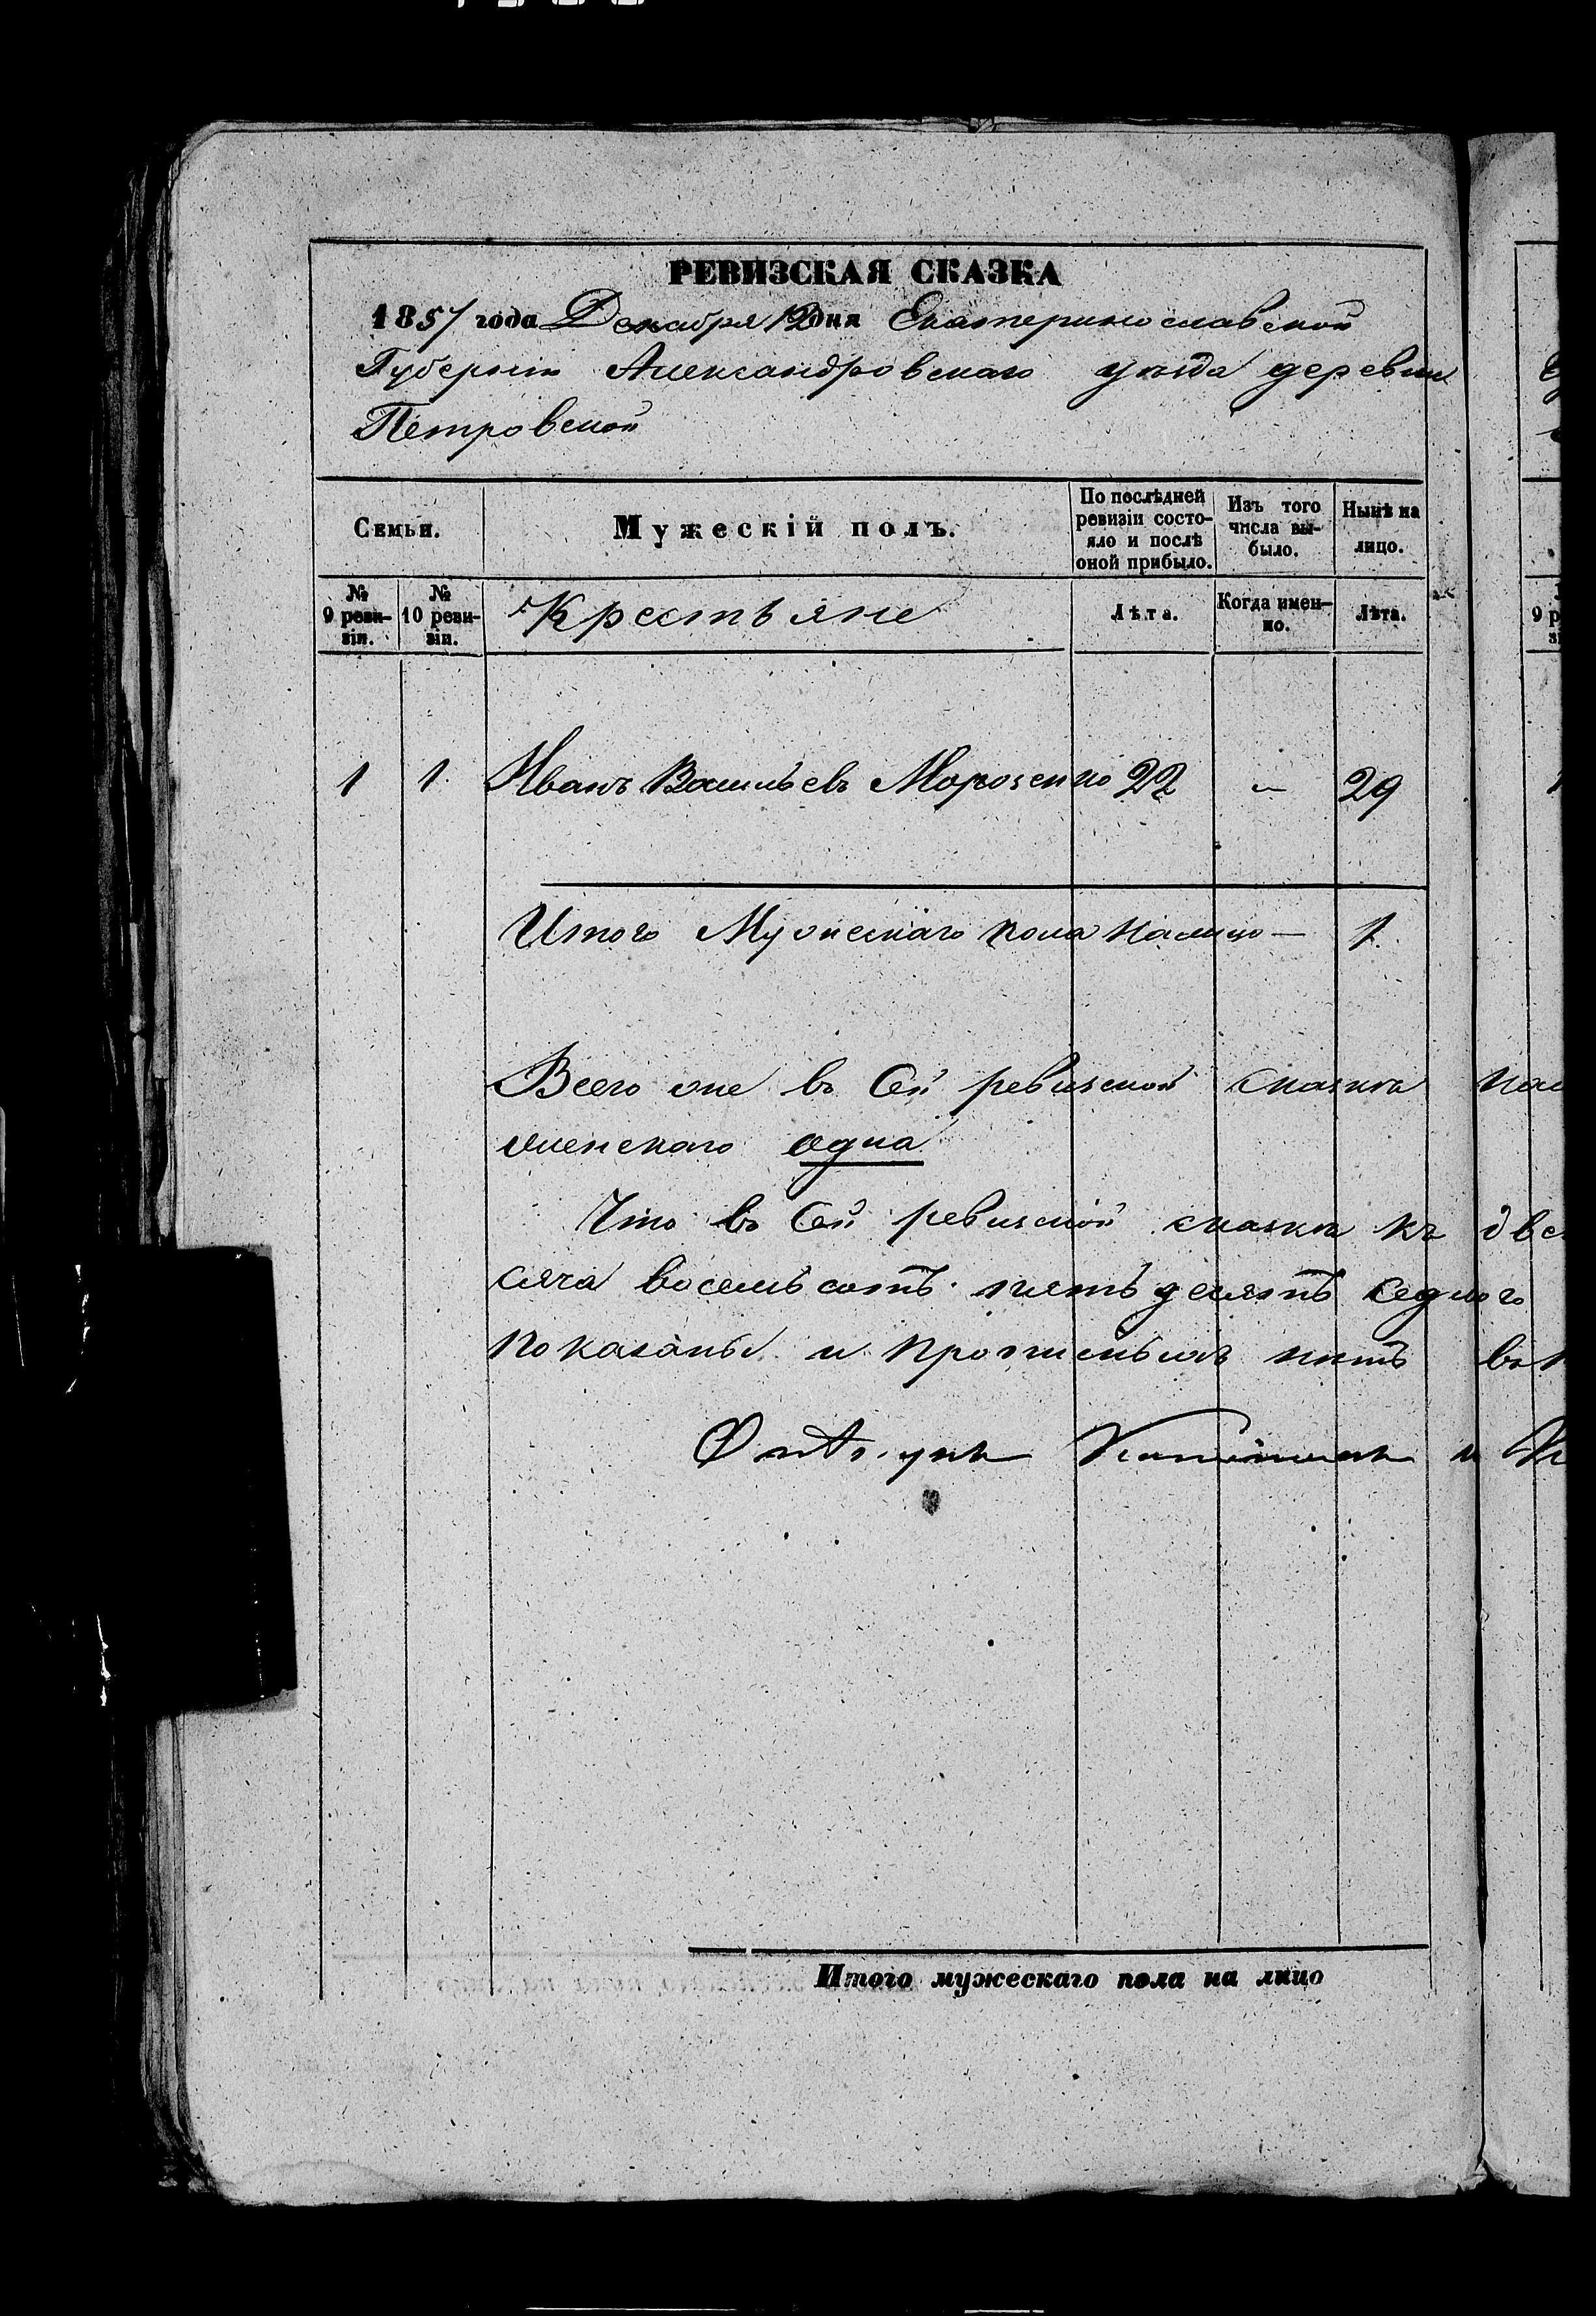 РЕВИЗСКАЯ СКАЗКА
1857 года Декабря 12 дня Екатеринославской
Губерніи Александровскаго уѣзда деревни
Петровской
Семьи.
Мужескій полъ.
По послѣдней ревизіи состояло и послѣ оной прибыло.
Изъ того числа выбыло.
Нынѣ на лицо.
№ 9 ревизіи.
№ 10 ревизіи.
Крестьяне
Лѣта.
Когда именно.
Лѣта.
1 1 Иванъ Васильевъ Морозенко 22 - 29
Итого Мужескаго пола налицо — 1
Всего же въ Сей ревизской сказкѣ
женскаго одна
Что въ Сей ревизской сказкѣ къ
сяча восемьсотъ пятьдесятъ седмого
показаны и прописныхъ нѣтъ въ
Итого мужескаго пола на лицо